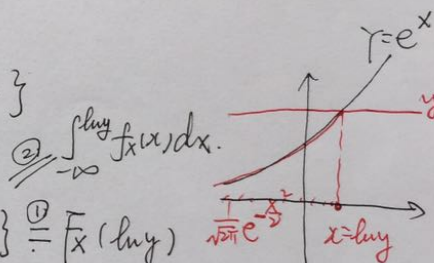 Y=e^x
}
② ∫_{-∞}^{lny} f_X(x)dx.
y
} ① = F_X(lny)
1/√2π e^{-x²/2}
x=lny